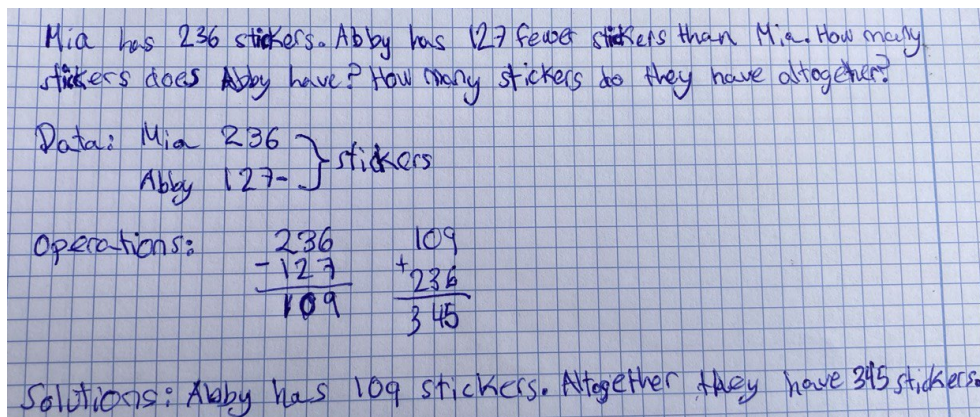 Mia has 236 stickers. Abby has 127 fewer stickers than Mia. How many
stickers does Abby have? How many stickers do they have altogether?
Data: Mia 236 } stickers
Abby 127-
Operations: 236 109
-127 +236
109 345
Solutions: Abby has 109 stickers. Altogether they have 345 stickers.